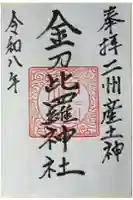 奉拝 二州産土神
金刀比羅神社
令和八年